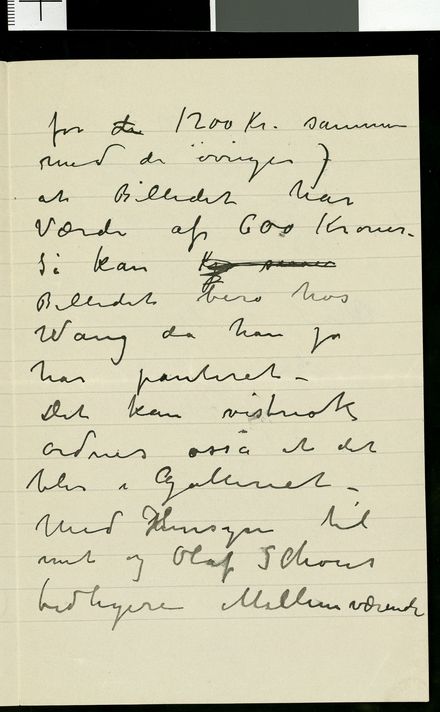 for 1200 Kr. sammen
med de øvriger )
at Billedet har
Værdi af 600 Kroner.
Så kan
Billedet bero hos
Wang da han jo
har panteret –
Det kan vistnok
ordnes osså at det
blir i Galleriet –
Med Hensyn til
mit og Olaf Schous
tidligere Mellemværende